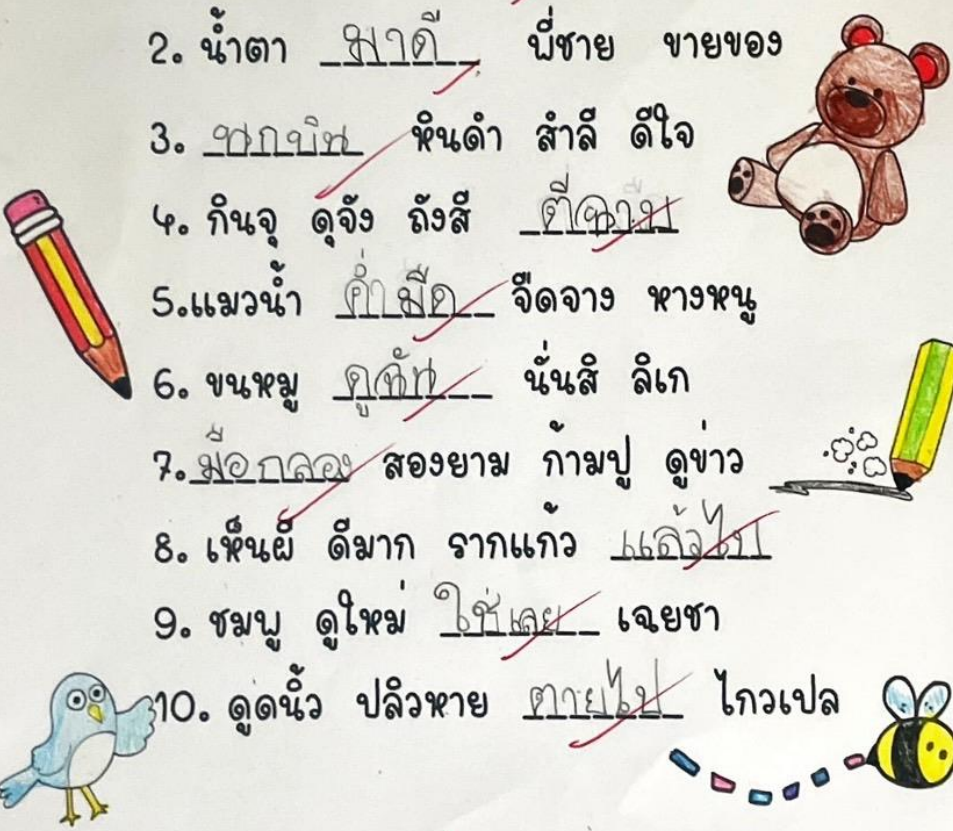 2. น้ำตา มาดี พี่ชาย ขายของ
3. นกบิน หินดำ สำลี ดีใจ
4. กินจุ ดุจัง ถังสี ตีฉาบ
5.แมวน้ำ ค่ำมืด จืดจาง หางหนู
6. ขนหมู ดูฉัน นั่นสิ ลิเก
7. มือกลอง สองยาม ก้ามปู ดูข่าว
8. เห็นผี ดีมาก รากแก้ว แล้วไง
9. ชมพู ดูใหม่ ใช่เลย เฉยชา
10. ดูดนิ้ว ปลิวหาย ตายไป ไกวเปล